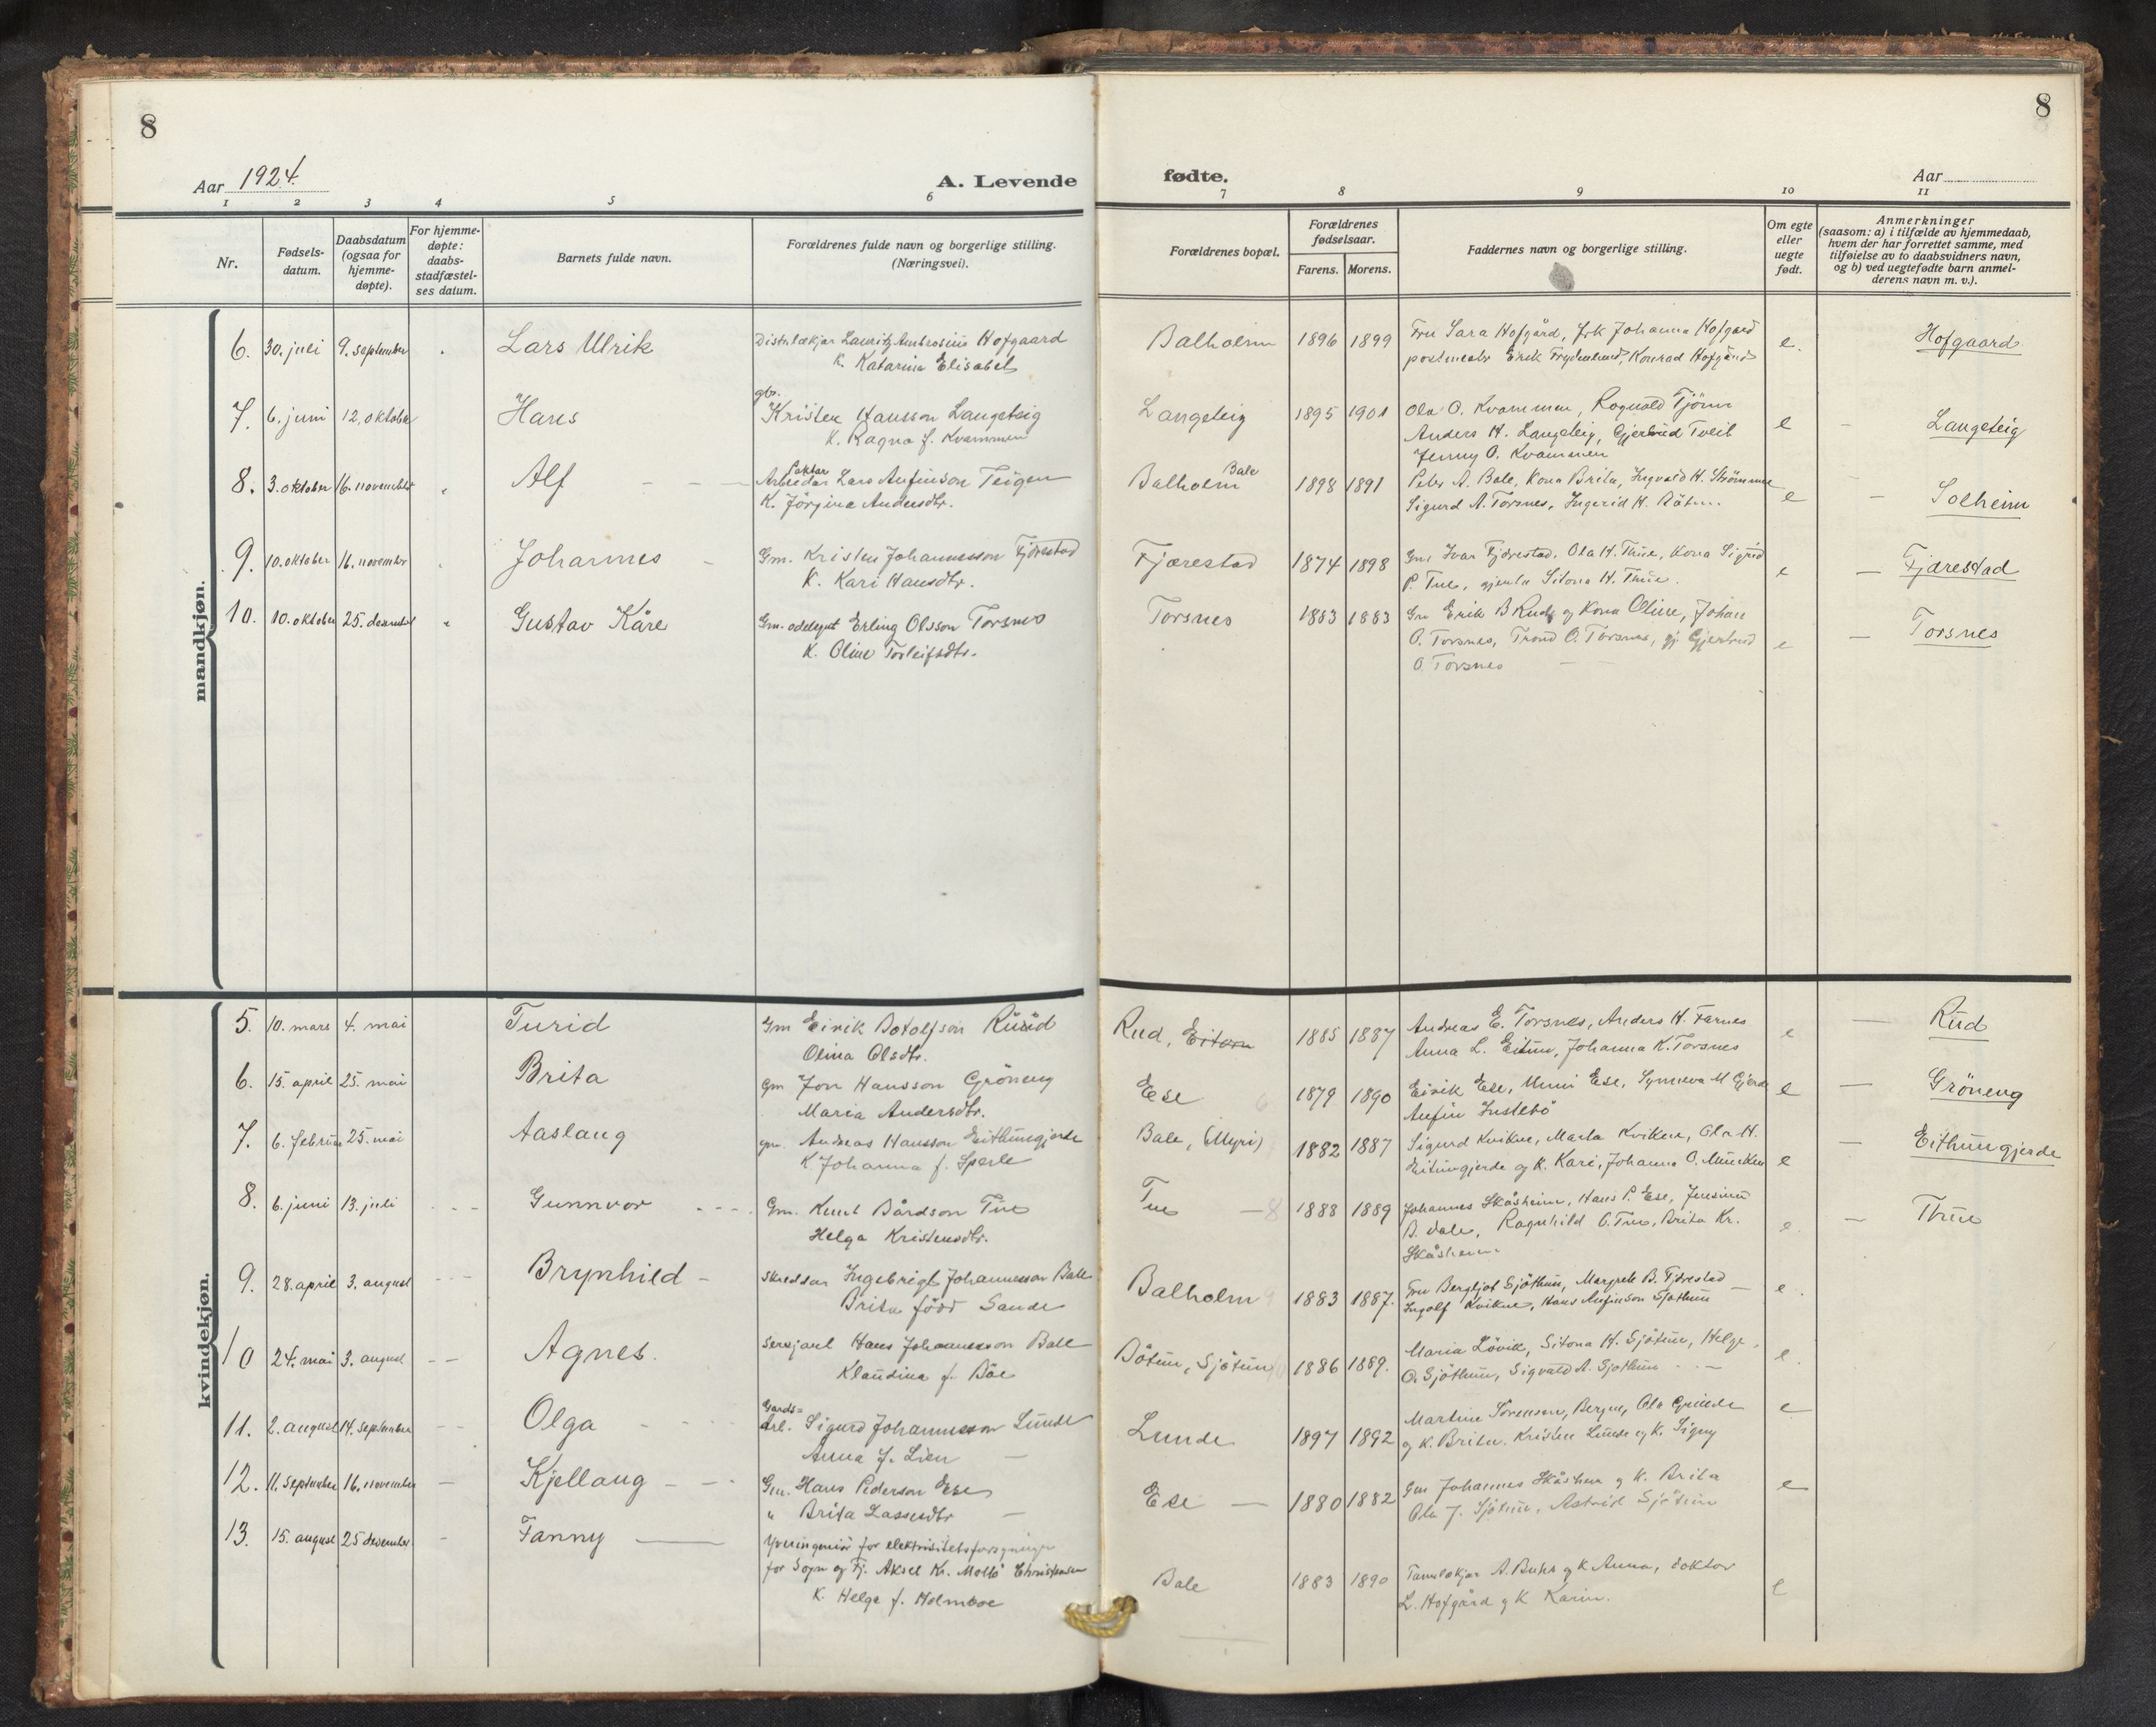 8
8
Aar 1924.
A. Levende
fødte.
Aar
1 2 3 4 5 6 7 8 9 10 11
Nr.
Fødsels-
datum.
Daabsdatum
(ogsaa for
hjemme-
døpte).
For hjemme-
døpte:
daabs-
stadfæstel-
ses datum.
Barnets fulde navn.
Forældrenes fulde navn og borgerlige stilling.
(Næringsvei).
Forældrenes bopæl.
Forældrenes
fødselsaar.
Farens. Morens.
Faddernes navn og borgerlige stilling.
Om egte
eller
uegte
født.
Anmerkninger
(saasom: a) i tilfælde av hjemmedaab,
hvem der har forrettet samme, med
tilføielse av to daabsvidners navn,
og b) ved uegtefødte barn anmel-
derens navn m. v.).
mandkjøn.
6. 30. juli 9. september Lars Ulrik Distr.lækjar Lauritz Ambrosius Hofgaard Balholm 1896 1899 Fru Sara Hofgård, frk Johanna Hofgard e. Hofgaard
K. Katarina Elisabet postmester Erik Frydenlund, Konrad Hofgård
7. 6. juni 12. oktober Hans gbr. Kristen Hansson Langeteig Langeteig 1895 1901 Ola O. Kvammen, Ragnvald Tjönn e - Langeteig
K. Ragna f. Kvammen Anders H. Langeteig, Gjertrud Tveit
Jenny O. Kvammen
8. 3. oktober 16. november Alf - - - Arbeidar Lars Anfinson Teigen Balholm Bale 1898 1891 Peter A. Bale, Kona Brita, Ingvald H. e - Solheim
K. Jörgine Andersdtr. Sigurd A. Torsnes, Ingerid H.
9. 10. oktober 16. november Johannes - Gm. Kristen Johannesson Fjærestad Fjærestad 1874 1898 Gm. Ivar Fjærestad, Ola H. Thue, Kona Sigrid e - Fjærestad
K. Kari Hansdtr. P. Tue, gjenta Sitona H. Thue.
10. 10. oktober 25. desember Gustav Kåre Gm. odelsgut Erling Olsson Torsnes Torsnes 1883 1883 Gm Erik B Rud og Kona Oline, Johan e - Torsnes
K. Oline Torleifsdtr. O. Torsnes, Trond O. Torsnes, gj Gjertrud
O. Torsnes - -
kvindekjøn.
5. 10. mars 4. mai Turid Gm Eirik Botolfson Rud Rud, Eitorn 1885 1887 Andreas E. Torsnes, Anders H. Farnes e - Rud
Olina Olsdtr. Anna L. Eitun, Johanna K. Torsnes
6. 15. april 25. mai Brita Gm Jon Hansson Gröneng Ese 6 1879 1890 Eirik Ese, Unni Ese, Synneva M Gjerde e - Gröneng
Maria Andersdtr. Anfin Instebö
7. 6. februar 25. mai Aaslaug gm. Andreas Hansson Eithungjerde Bale, (Myri) 1882 1887 Sigurd Kvikne, Marta Kvikne, Ola H. e - Eithungjerde
K Johanna f. Sperle Eitungjerde og K. Kari, Johanna O.
8. 6. juni 13. juli - - - Gunnvor - - - Gm. Knut Bårdson Tue Tue - 8 1888 1889 Johannes Skåsheim, Hans P. Ese, e. - Thue
Helga Kristensdtr. B. Bale, Ragnhild O. Tue, Brita Kr.
Skåsheim
9. 28. april 3. august - - - Brynhild - Skreddar Ingebrigt Johannesson Bale Balholm 9 1883 1887. Fru Bergljot Sjöthun, Margrete B. Fjærestad - e.
Brita född Sande Ingolf Kvikne, Hans Anfinson Sjöthun
10 24. mai 3. august - - Agnes. Sersjant Hans Johannesson Bale Bötun, Sjötun 10 1886 1889. Maria Lövik, Sitona H. Sjötun, Helge e.
Klaudina f. Böe O. Sjöthun, Sigvald A. Sjöthun - -
11. 2. august 14. september - - Olga - - - Gards= arb. Sigurd Johannesson Lunde Lunde 1897 1892 Martine Sörensen, Bergen, Ola Grinde e
Anna f. Lien - og K. Brita. Kristen Lunde og K. Signy
12. 11. September 16. november - Kjellaug - - - Gm. Hans Pederson Ese Ese - 1880 1882 Gm Johannes og K. Brita e
" Brita Lassesdtr - Ola J. Sjötun, Astrid Sjötun
13. 15. august 25 desember - Fanny - Yveringeniör for elektrisitetsforsyninga
for Sogn og Fj. Aksel Kr. Christensen Bale 1883 1890 Tannlækjar A. Buhs og K Anna, doktor e
K. Helga f. Holmboe L. Hofgård og K Karin.